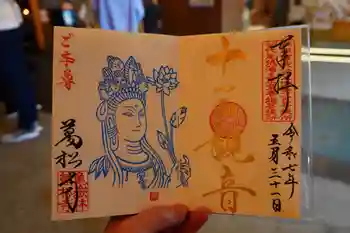 奉拝
十一観音
令和七年
五月三十一日
ご本尊
萬松寺